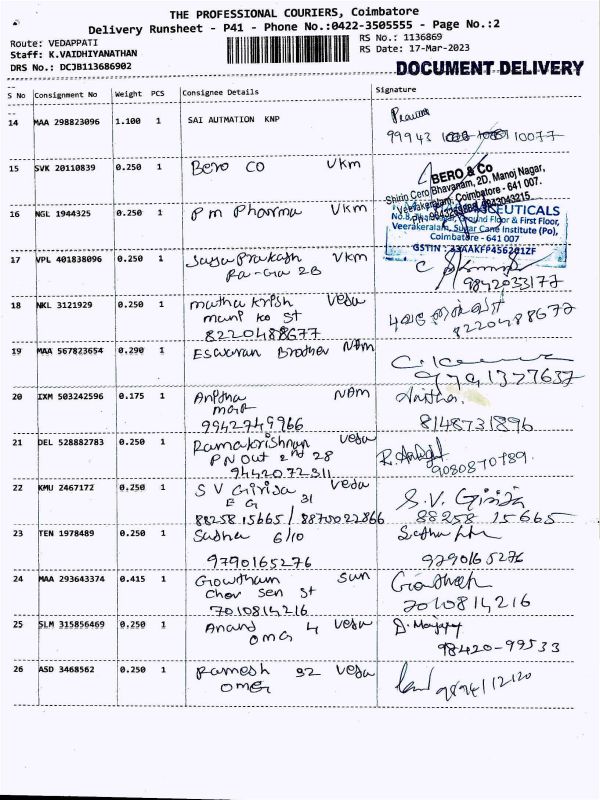 THE PROFESSIONAL COURIERS, Coimbatore
Delivery Runsheet - P41 - Phone No.:0422-3505555 - Page No.:2
Route: VEDAPPATI
RS No.: 1136869
Staff: K.VAIDHIYANATHAN
RS Date: 17-Mar-2023
DRS No.: DCJB113686902
DOCUMENT DELIVERY
S No Consignment No Weight PCS Consignee Details Signature
14 MAA 298823096 1.100 1 SAI AUTMATION KNP
99943 10077
15 SVK 20110839 0.250 1 Bero Co Vkm
BERO & Co
Shirin Cero Bhavanam, 2D, Manoj Nagar,
Veerakeralam, Coimbatore - 641 007.
16 NGL 1944325 0.250 1 Pm Pharma Vkm
CEUTICALS
Ground Floor & First Floor,
Veerakeralam, Sugar Cane Institute (Po),
Coimbatore - 641 007
17 VPL 401838096 0.250 1 Prakash Vkm
9842033177
18 NKL 3121929 0.250 1 muthu krish Veda
mani ko st
8220488677
8220488677
19 MAA 567823654 0.290 1 Eswaran Brother NAm
9791377637
20 IXM 503242596 0.175 1 Anitha NAm
9942749966
8148731896
21 DEL 528882783 0.250 1 Ramakrishnan Veda
PN Out 2nd 28
9442072311
9080870789.
22 KMU 2467172 0.250 1 S V Girija Veda S.V. Girija
E G 31
8825815665 / 8870022866 88258 15665
23 TEN 1978489 0.250 1 Sudha 6/10
9790165276 9790165276
24 MAA 293643374 0.415 1 Gowtham Sun
st
7010814216 7010814216
25 SLM 315856469 0.250 1 Anand 4 Veda
OMG 98420-99533
26 ASD 3468562 0.250 1 Ramesh 92 Veda
OMG